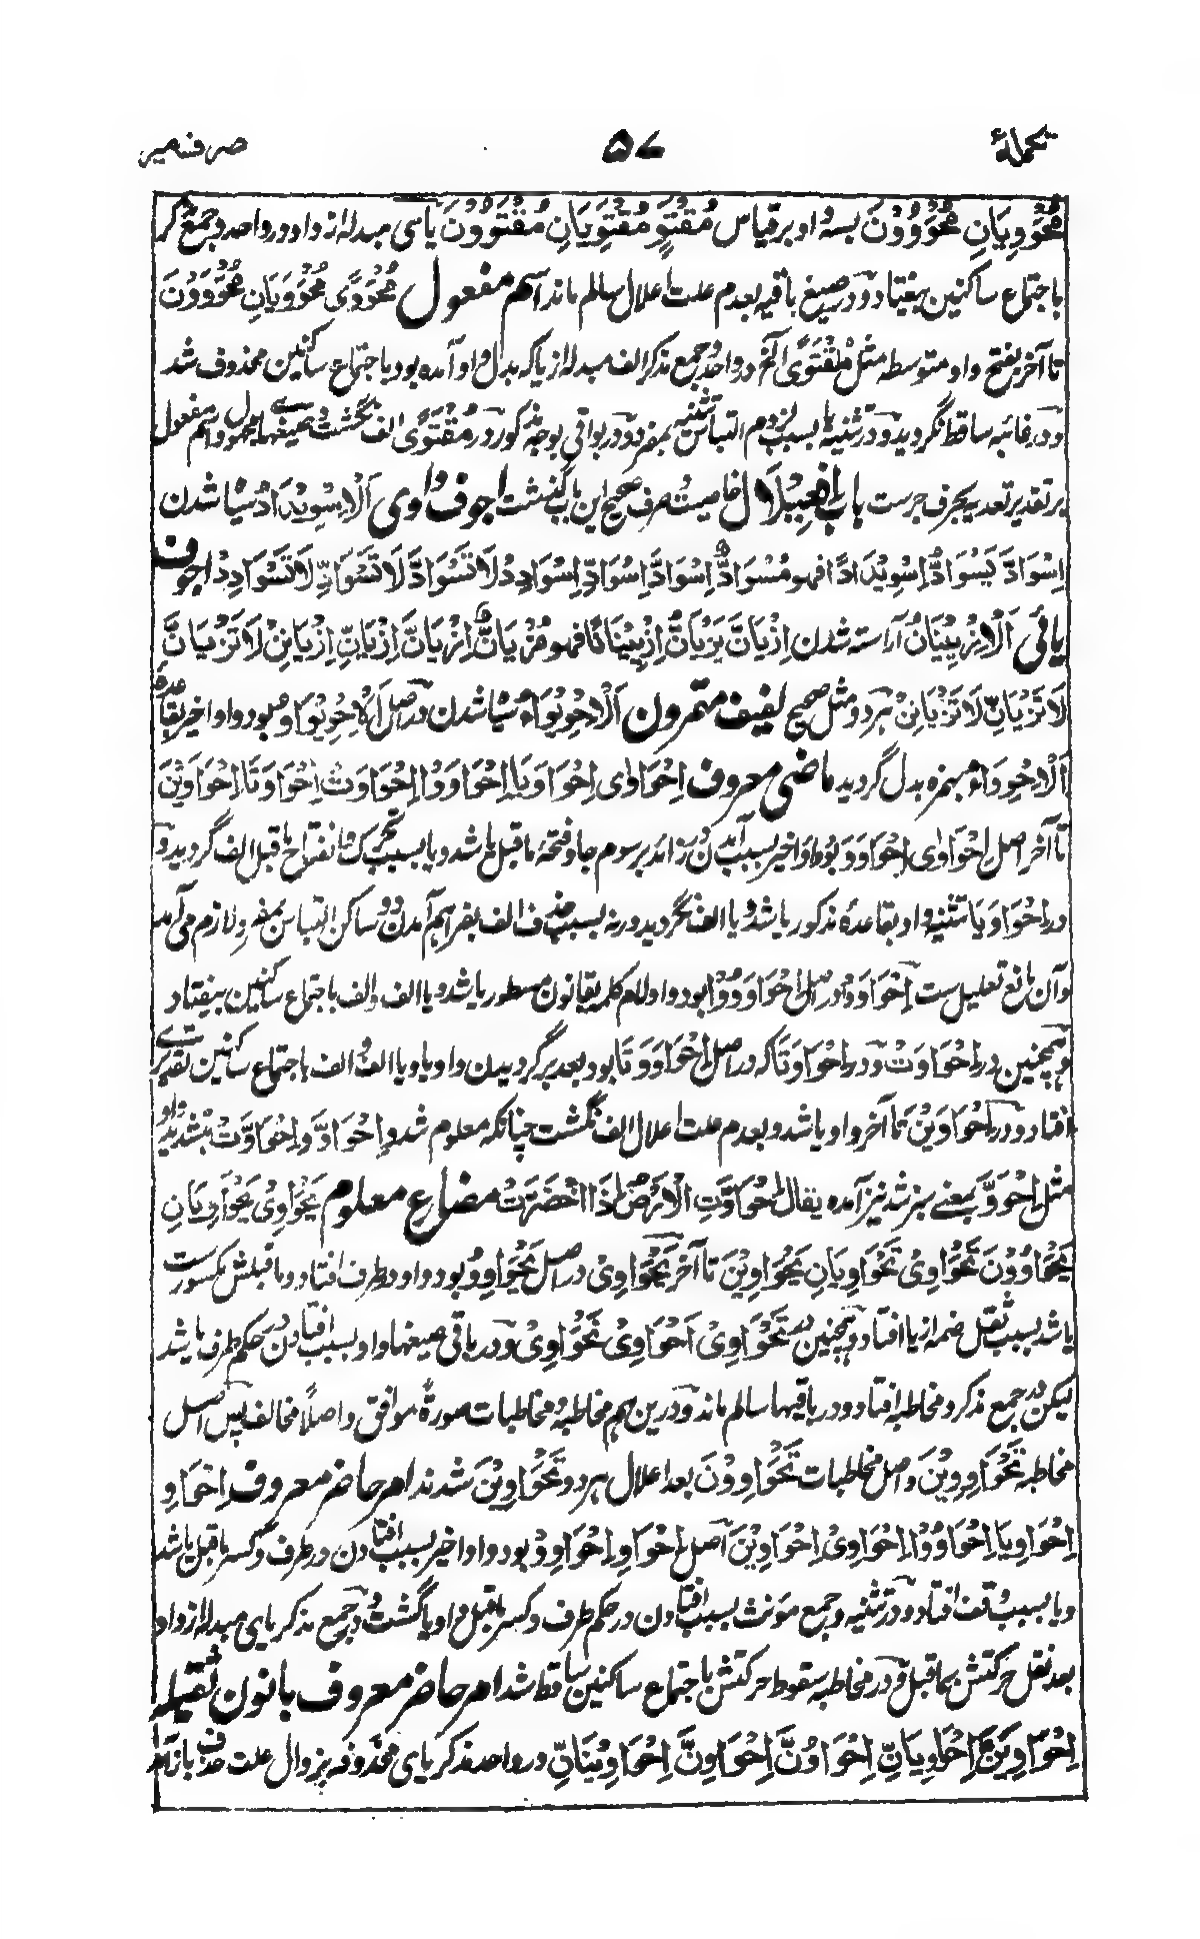 تکملهٔ ۵۷ صرف میر
مُحْوَوِیَانِ مُحْوَوُوْنَ بسه واو بر قیاس مُقْتَوٍ مُقْتَوِیَانِ مُقْتَوُوْنَ یاسی مبدله از واو در واحد و جمع مذکر
باجتماع ساکنین بیفتاد و در صیغ باقیه بعدم علت اعلال سالم ماند اسم مفعول مُحْوَوًی مُحْوَوَیَانِ مُحْوَوَوْنَ
تا آخر بفتح واو متوسطه مثل مُقْتَوًی الخ در واحد و جمع مذکر الف مبدله از یا که بدل واو آمده بود باجتماع ساکنین محذوف شد
و در غائبه ساقط نگردید و در تثنیه یا بسبب لزوم التباس تثنیه بمفرد و در بواقی بوجه مذکور در مُقْتَوًی الف نگشت صیغهای مجهول و اسم مفعول
بر تقدیر تعدیه بحرف جرست باب اِفْعِیْلَال خاصیت و صرف صحیح این باب گذشت اجوف واوی اَلْاِسْوِیْدَادُ سیاه شدن
اِسْوَادَّ یَسْوَادُّ اِسْوِیْدَادًا فهو مُسْوَادٌّ اِسْوَادَّ اِسْوَادِّ اِسْوَادِدْ لَا تَسْوَادَّ لَا تَسْوَادِّ لَا تَسْوَادِدْ اجوف
یائی اَلْاِزْیِیْنَانُ آراسته شدن اِزْیَانَّ یَزْیَانُّ اِزْیِیْنَانًا فهو مُزْیَانٌّ اِزْیَانَّ اِزْیَانِّ اِزْیَانِنْ لَا تَزْیَانَّ
لَا تَزْیَانِّ لَا تَزْیَانِنْ هر دو مثل صحیح لفیف مقرون اَلْاِحْوِیْوَاءُ سیاه شدن در اصل اَلْاِحْوِیْوَاوُ بود واو اخیر بقاعده
اَلْاِحْوِوَاءُ بهمزه بدل گردید ماضی معروف اِحْوَاوٰی اِحْوَاوَیَا اِحْوَاوَوْا اِحْوَاوَتْ اِحْوَاوَتَا اِحْوَاوَیْنَ
تا آخر اصل اِحْوَاوٰی اِحْوَاوَوَ بود واو اخیر بسبب آمدن در زائد بر سوم جا و فتحهٔ ماقبل یا شد و یا بسبب تحرک و انفتاح ماقبل الف گردید و
در اِحْوَاوَیَا تثنیه واو بقاعدهٔ مذکور یا شد و یا الف نگردید ورنه بسبب حذف الف بفراهم آمدن دو ساکن التباس بمفرد لازم می آمد
و آن مانع تعلیل ست اِحْوَاوَوْا در اصل اِحْوَاوَوُوْا بود واو لام کلمه بقانون مسطور یا شد و یا الف والف باجتماع ساکنین بیفتاد
و همچنین در اِحْوَاوَتْ و در اِحْوَاوَتَا که در اصل اِحْوَاوَوَتَا بود بعد برگردیدن واو یا و یا الف الف باجتماع ساکنین تقدیرے
افتاد و در اِحْوَاوَیْنَ تا آخر واو یا شد و بعدم علت اعلال الف نگشت چنانکه معلوم شد و اِحْوَاوَّ و اِحْوَاوَّتْ بتشدید واو
مثل اِحْوَوَّ بمعنے سبز شد نیز آمده یقال اِحْوَاوَّتِ الْاَرْضُ اِذَا اخْضَرَّتْ مضارع معلوم یَحْوَاوِیْ یَحْوَاوِیَانِ
یَحْوَاوُوْنَ تَحْوَاوِیْ تَحْوَاوِیَانِ یَحْوَاوِیْنَ تا آخر یَحْوَاوِیْ در اصل یَحْوَاوِوُ بود واو در طرف افتاد و ماقبلش مکسورست
یا شد بسبب ثقل ضمه از یا افتاد و همچنین در تَحْوَاوِیْ اَحْوَاوِیْ نَحْوَاوِیْ و در باقی صیغها واو بسبب افتادن در حکم طرف یا شد
لیکن در جمع مذکر و مخاطبه افتاد و در باقیها سالم ماند و درین هم مخاطبه و مخاطبات صورةً موافق و اصلاً مخالف پس اصل
مخاطبه تَحْوَاوِوِیْنَ و اصل مخاطبات تَحْوَاوِوْنَ بعد اعلال هر دو تَحْوَاوِیْنَ شدند امر حاضر معروف اِحْوَاوِ
اِحْوَاوِیَا اِحْوَاوُوْا اِحْوَاوِیْ اِحْوَاوِیْنَ اصل اِحْوَاوِ اِحْوَاوِوْ بود واو اخیر بسبب افتادن در طرف و کسر ماقبل یا شد
و یا بسبب وقف افتاد و در تثنیه و جمع مونث بسبب افتادن در حکم طرف و کسر ماقبل واو یا گشت و در جمع مذکر یای مبدله از واو
بعد نقل حرکتش بماقبل و در مخاطبه سقوط حرکتش باجتماع ساکنین ساقط شد امر حاضر معروف بانون ثقیله
اِحْوَاوِیَنَّ اِحْوَاوِیَانِّ اِحْوَاوُنَّ اِحْوَاوِنَّ اِحْوَاوِیْنَانِّ در واحد مذکر یای محذوفه بزوال علت حذف باز آمد